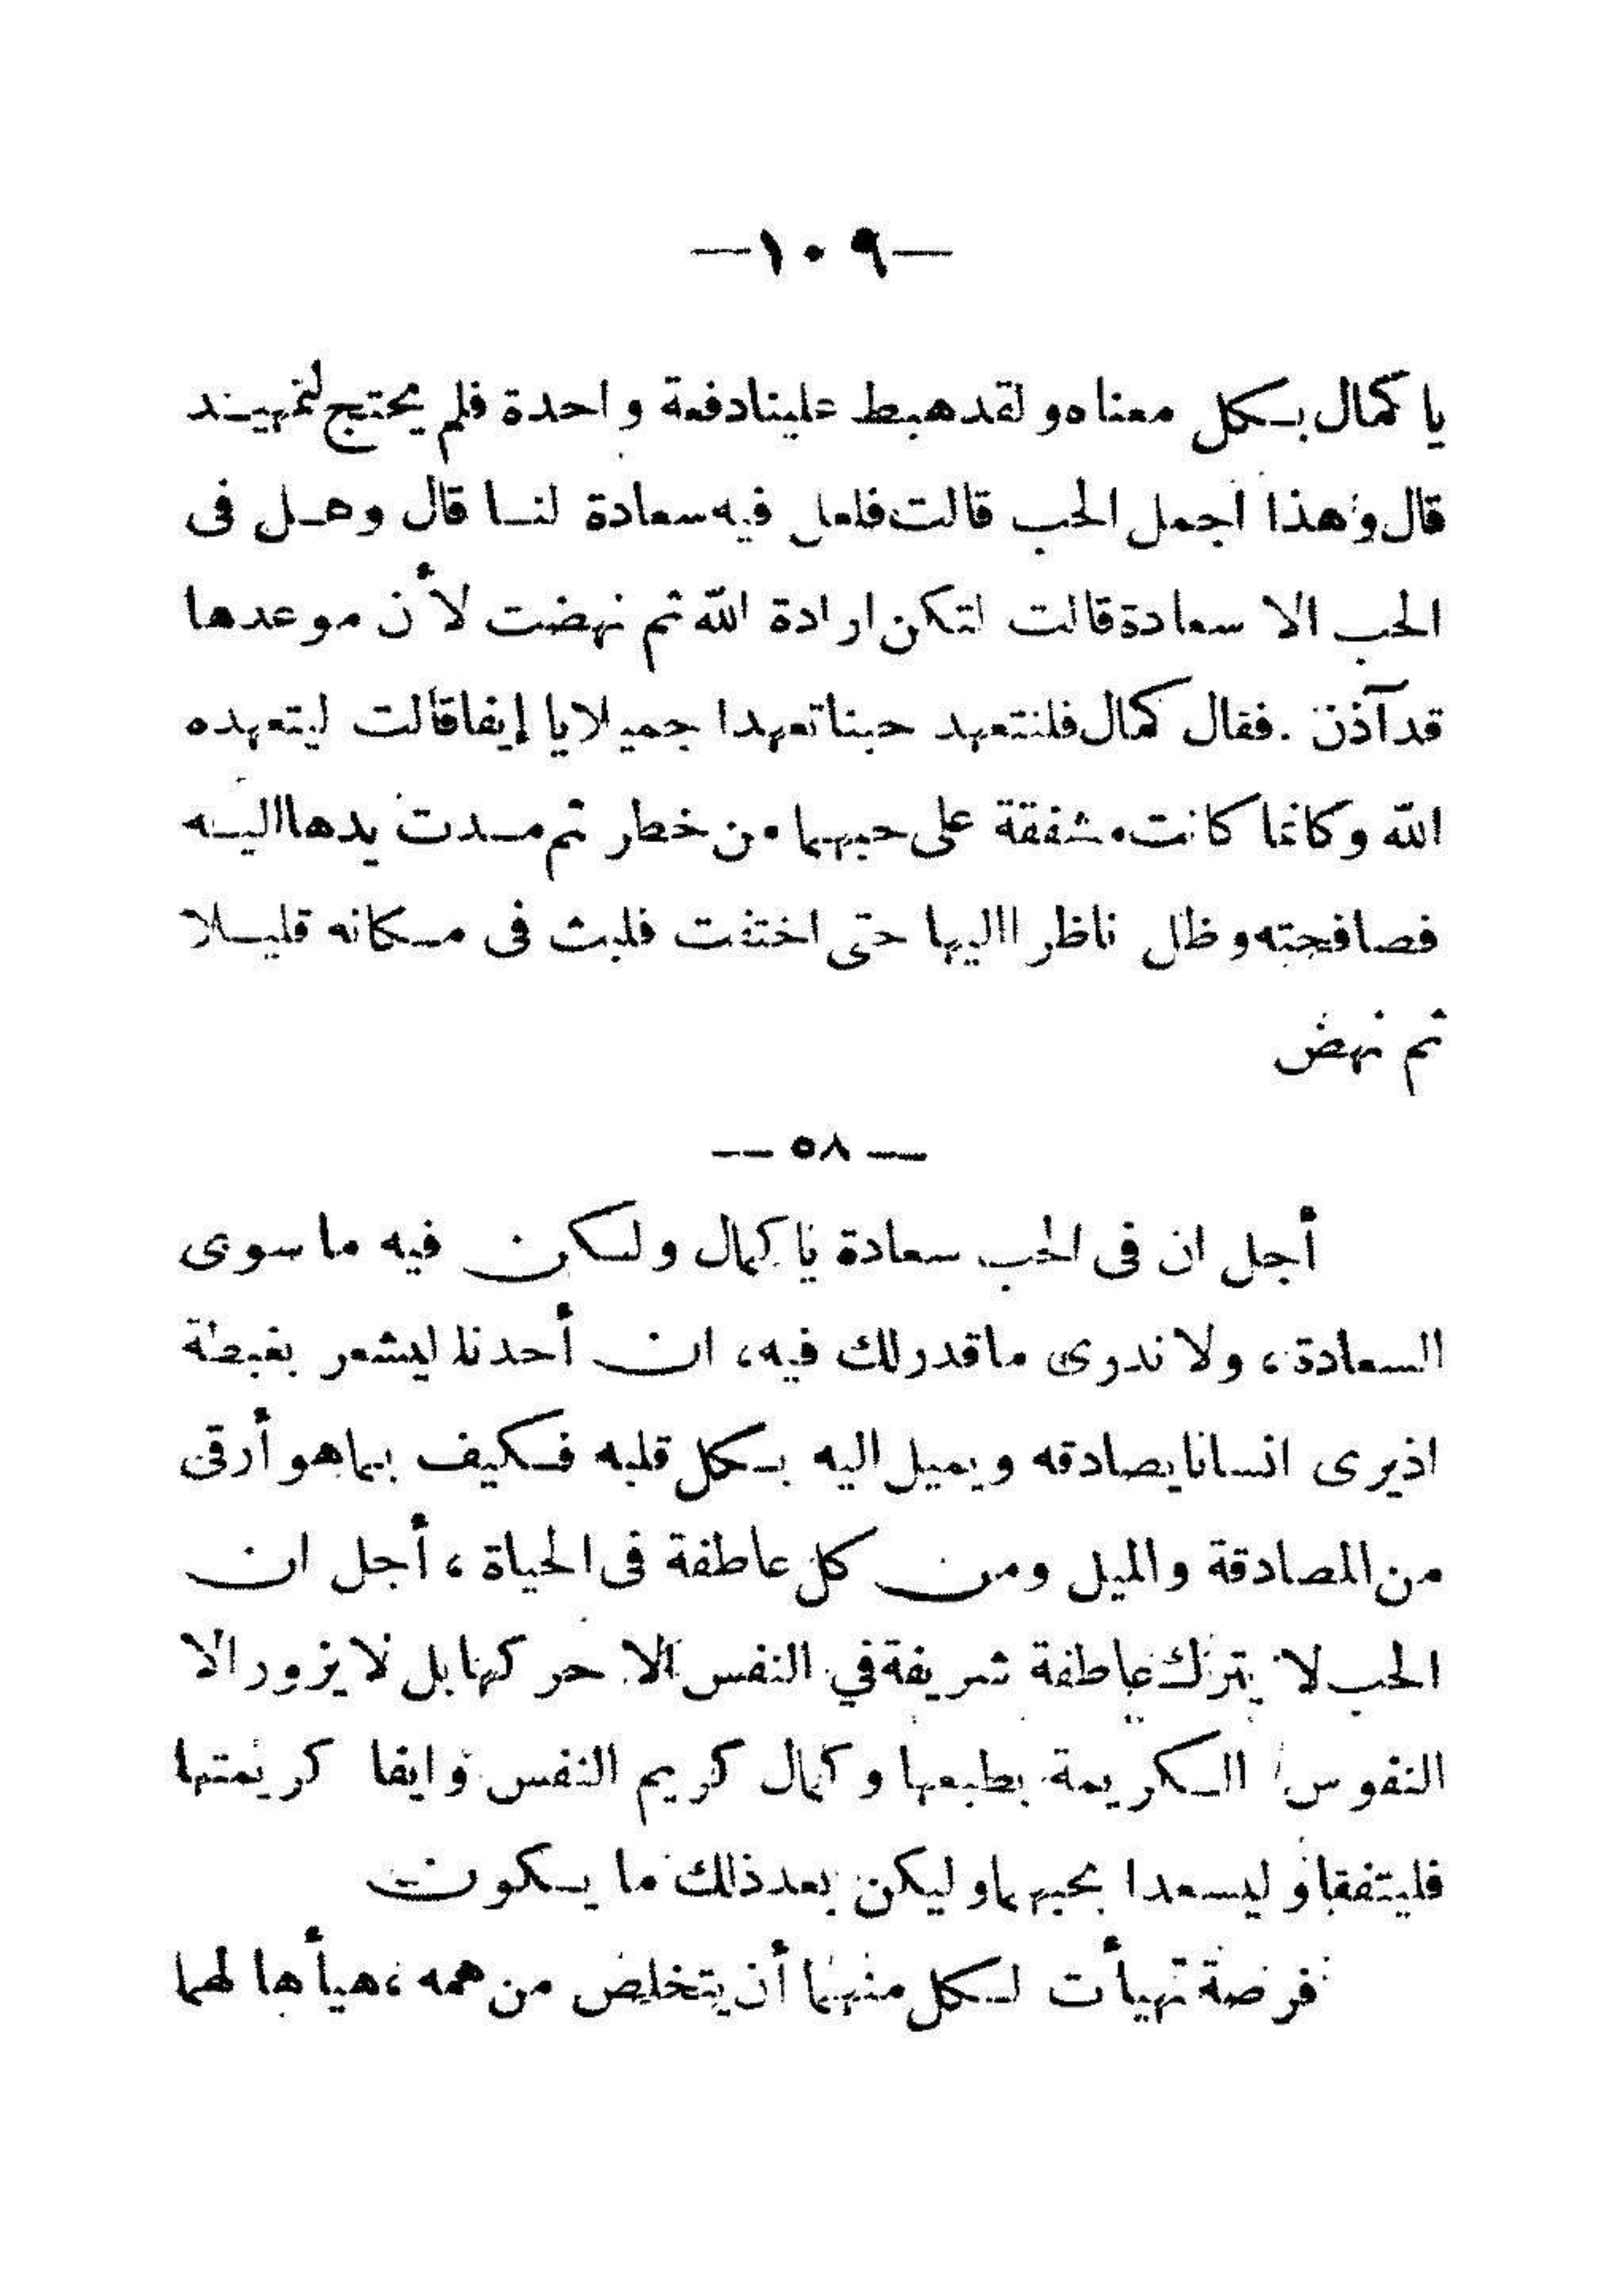 —١٠٩—
يا كمال بكل معناه ولقد هبط علينا دفعة واحدة فلم يحتج لتمهيد
قال وهذا اجمل الحب قالت فلعل فيه سعادة لنا قال وهل فى
الحب الا سعادة قالت لتكن ارادة الله ثم نهضت لأن موعدها
قد آذن . فقال كمال فلنتعهد حبنا تعهدا جميلا يا إيفا قالت ليتعهده
الله وكانما كانت مشفقة على حبهما من خطر ثم مدت يدها اليه
فصافحته وظل ناظرا اليها حتى اختفت فلبث فى مكانه قليلا
ثم نهض
— ٥٨ —
أجل ان فى الحب سعادة يا كمال ولكن فيه ما سوى
السعادة ، ولا ندرى ما قدر لك فيه ، ان أحدنا ليشعر بغبطة
اذ يرى انسانا يصادقه ويميل اليه بكل قلبه فكيف بما هو أرقى
من المصادقة والميل ومن كل عاطفة فى الحياة ، أجل ان
الحب لا يترك عاطفة شريفة في النفس الا حركها بل لا يزور الا
النفوس الكريمة بطبعها وكمال كريم النفس وايفا كريمتها
فليتفقا وليسعدا بحبهما وليكن بعد ذلك ما يكون
فرصة تهيأت لكل منهما أن يتخلص من همه ، هيأها لهما